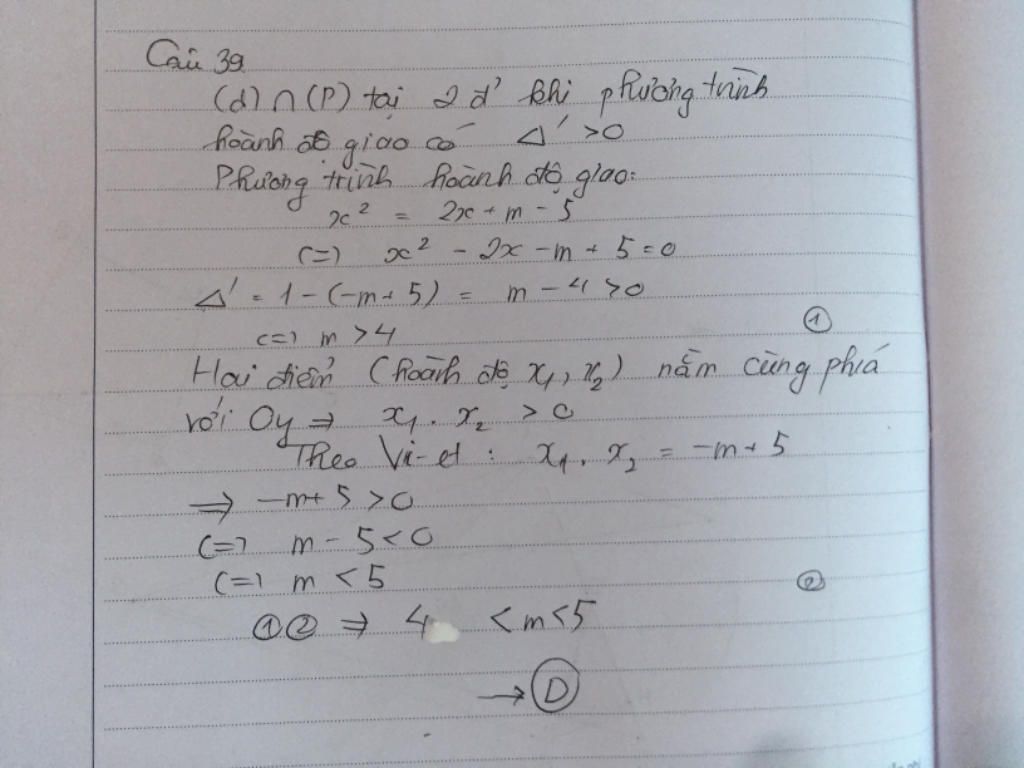 Câu 39
(d) ∩ (P) tại 2 đ' khi phương trình
hoành độ giao có Δ' > 0
Phương trình hoành độ giao:
x² = 2x + m - 5
(=) x² - 2x - m + 5 = 0
Δ' = 1 - (-m + 5) = m - 4 > 0
(=) m > 4
①
Hai điểm (hoành độ x₁, x₂) nằm cùng phía
với Oy ⇒ x₁ . x₂ > 0
Theo Vi-et : x₁ . x₂ = -m + 5
⇒ -m + 5 > 0
(=) m - 5 < 0
(=) m < 5 ②
①② ⇒ 4 < m < 5
→ Ⓓ